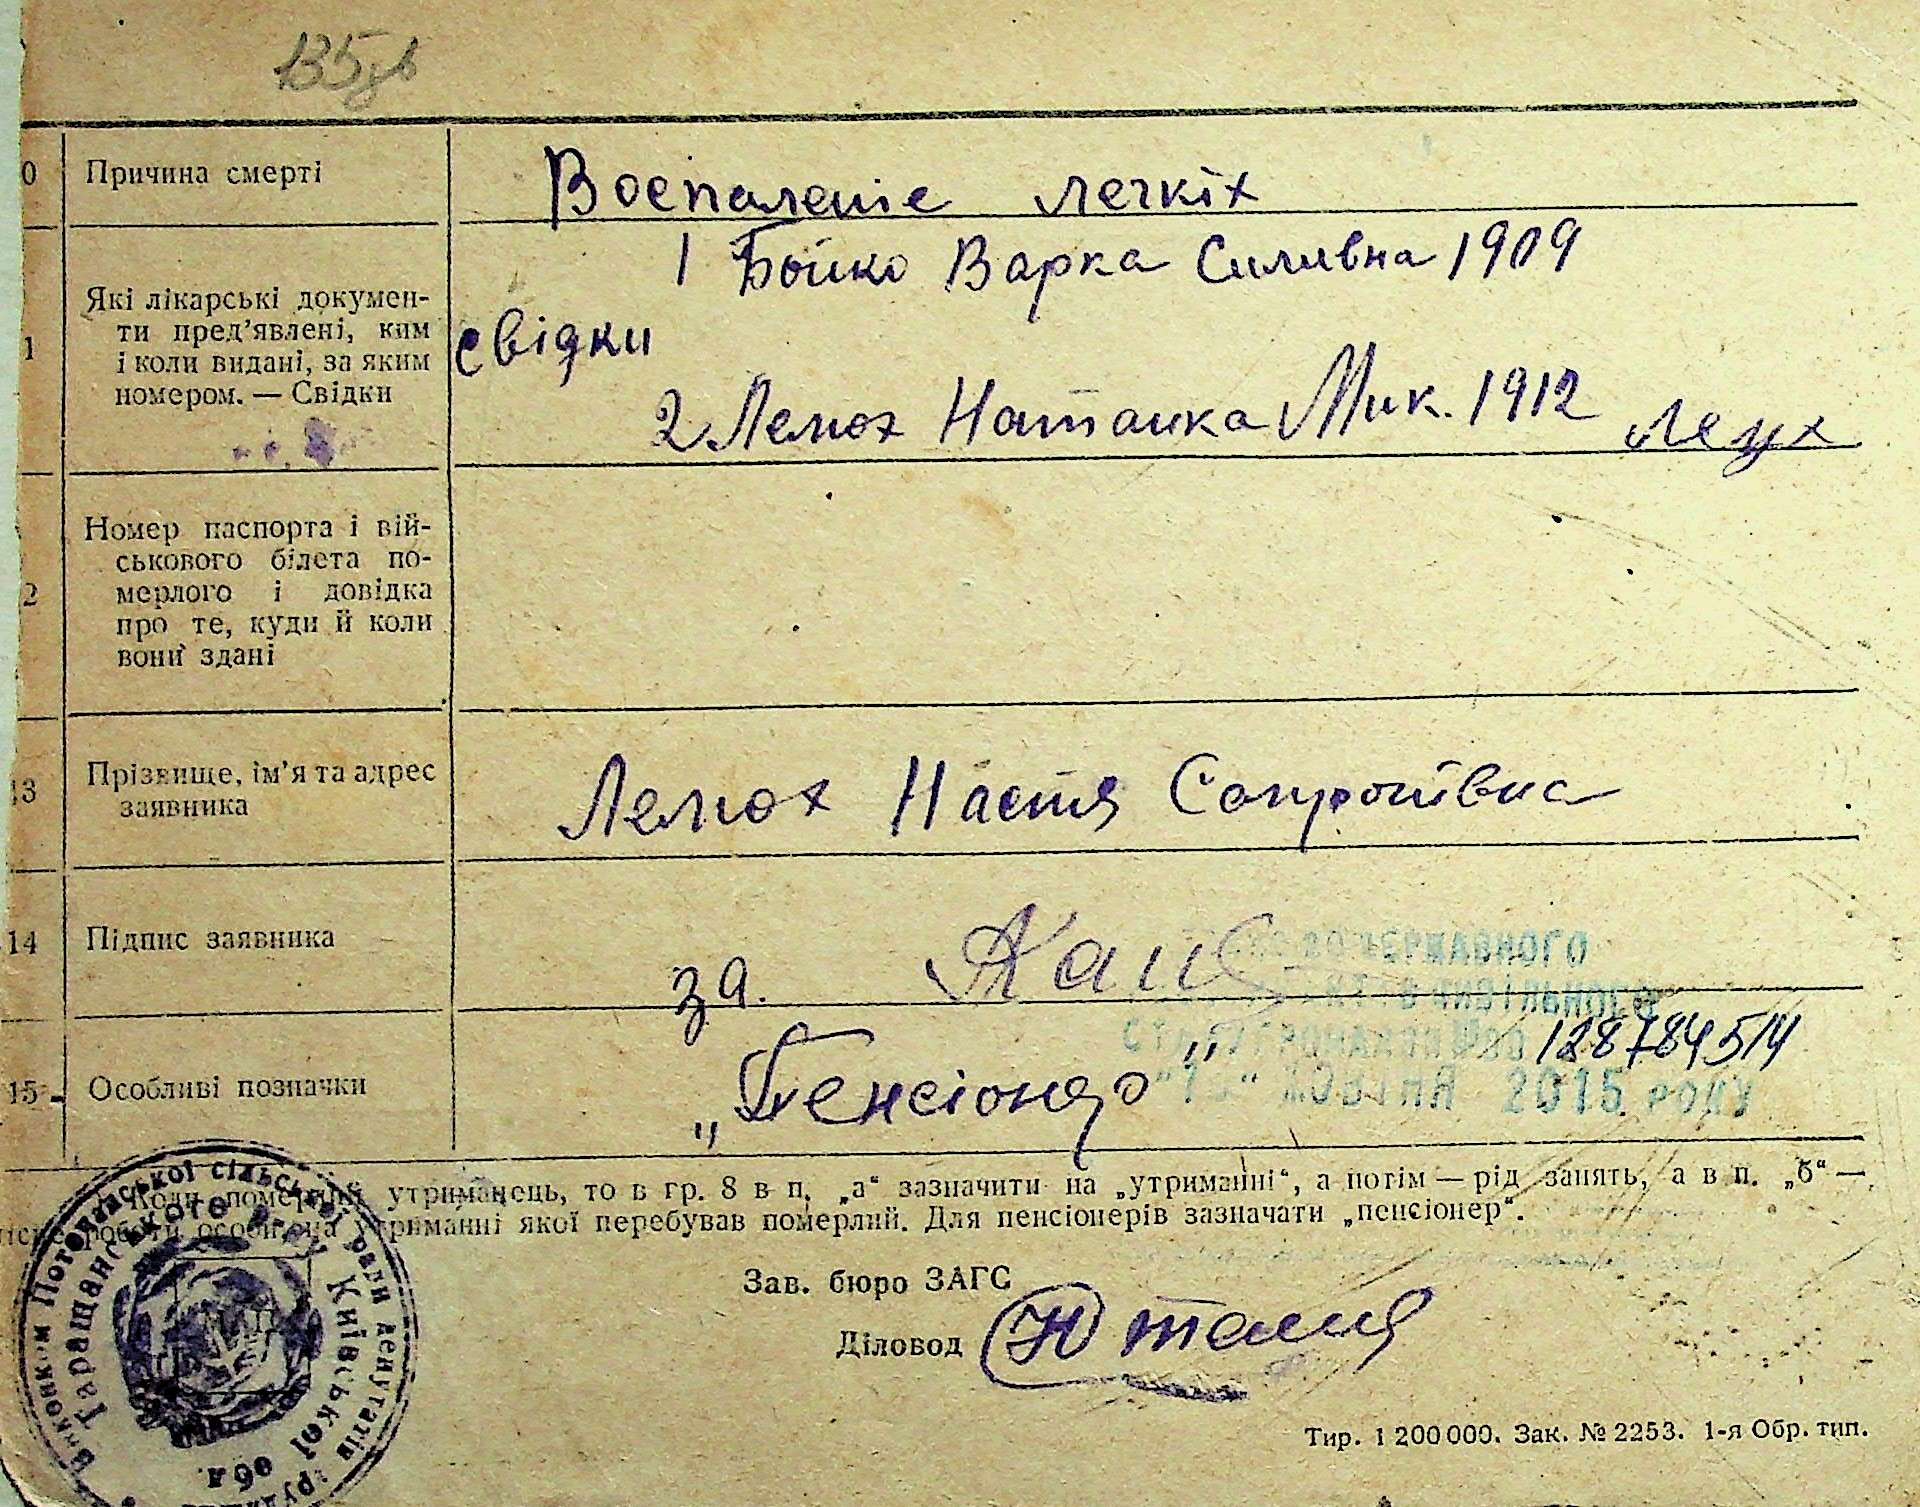 135
0 Причина смерті Воспаленіе легкіх
1 Бойко Варка Силивна 1909
1 Які лікарські докумен-
ти пред’явлені, ким
і коли видані, за яким
номером. — Свідки
свідки
2 Лемох Наталка Мик. 1912
2 Номер паспорта і вій-
ськового білета по-
мерлого і довідка
про те, куди й коли
вони здані
13 Прізвище, ім’я та адрес
заявника
Лемох Настя Сопроновна
14 Підпис заявника
за.
ДЕРЖАВНОГО
ЦИВІЛЬНОГО
15 Особливі позначки „Пенсіонер“
128784514
2015 РОКУ
Коли померлий утриманець, то в гр. 8 в п. „а“ зазначити на „утриманні“, а потім — рід занять, а в п. „б“ —
роботи особи, на утриманні якої перебував померлий. Для пенсіонерів зазначати „пенсіонер“.
Зав. бюро ЗАГС
Діловод
Виконком сільської ради депутатів
Таращанського Київської
обл
Тир. 1 200 000. Зак. № 2253. 1-я Обр. тип.